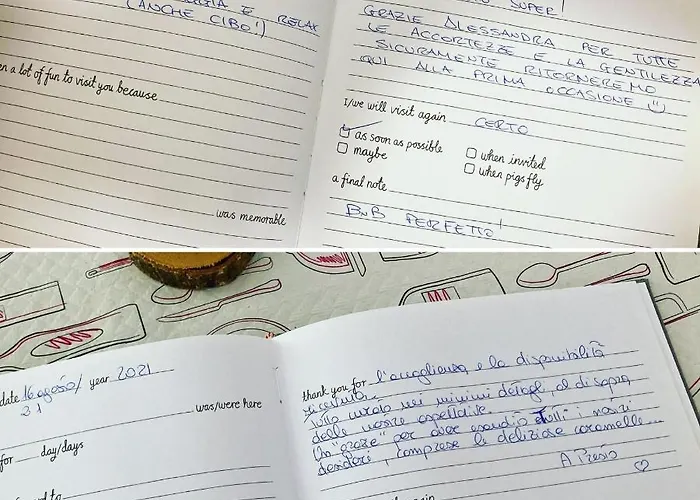 E RELAX
(ANCHE CIBO!)
a lot of fun to visit you because
was memorable
SUPER!
GRAZIE ALESSANDRA PER TUTTE
LE ACCORTEZZE E LA GENTILEZZA
SICURAMENTE RITORNEREMO
QUI ALLA PRIMA OCCASIONE
I/we will visit again CERTO
as soon as possible
maybe
when invited
when pigs fly
a final note
BnB PERFETTO!
date 16 agosto/ year 2021
was/were here
for day/days
thank you for l'accoglienza e la disponibilità
ricevuta.
Tutto curato nei minimi dettagli, al di sopra
delle nostre aspettative.
Un "grazie" per aver esaudito tutti i nostri
desideri, comprese le deliziose caramelle...
A Presto